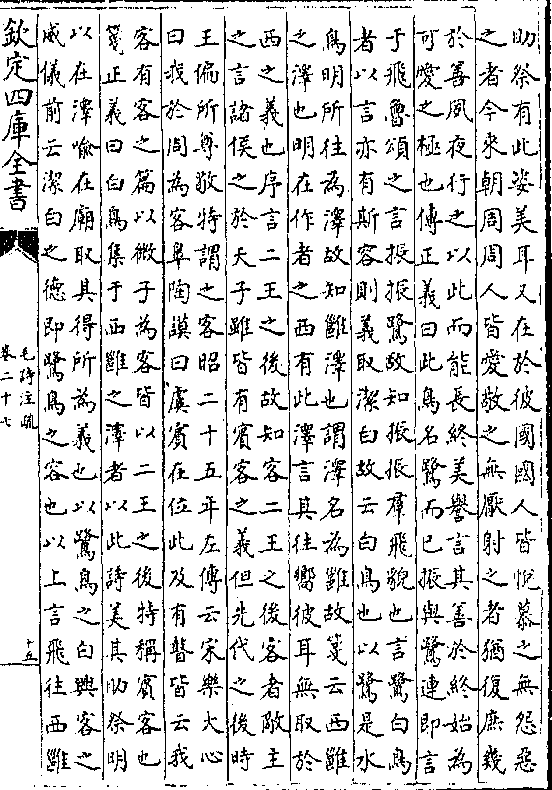 助祭有此姿美耳又在於彼國國人皆悅慕之無怨惡
之者今來朝周周人皆愛敬之無厭射之者猶復庶幾
於善夙夜行之以此而能長終美譽言其善於終始為
可愛之極也傳正義曰此鳥名鷺而已振與鷺連即言
于飛魯頌之言振振鷺故知振振羣飛貌也言鷺白鳥
者以言亦有斯容則義取潔白故云白鳥也以鷺是水
鳥明所往為澤故知雝澤也謂澤名為雝故箋云西雝
之澤也明在作者之西有此澤言其往嚮彼耳無取於
西之義也序言二王之後故知客二王之後客者敵主
之言諸侯之於天子雖皆有賓客之義但先代之後時
王偏所尊敬特謂之客昭二十五年左傳云宋樂大心
曰我於周為客臯陶謨曰虞賓在位此及有瞽皆云我
客有客之篇以微子為客皆以二王之後特稱賓客也
箋正義曰白鳥集于西雝之澤者以此詩美其助祭明
以在澤喻在廟取其得所為義也以鷺鳥之白興客之
威儀前云潔白之德即鷺鳥之容也以上言飛往西雝
欽定四庫全書
毛詩注疏
卷二十七
十五